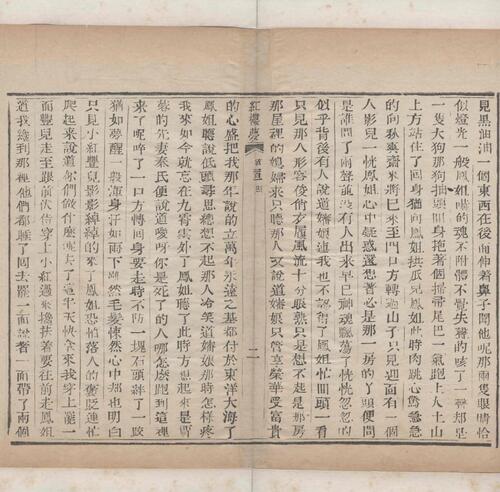 見黑油油一個東西在後面伸着鼻子聞他呢那兩隻眼睛恰
似燈光一般鳳姐嚇的魂不附體不覺失聲的咳了一聲却是
一隻大狗那狗抽頭回身拖著個掃帚尾巴一氣跑上大土山
上方站住了回身猶向鳳姐拱爪兒鳳姐此時肉跳心驚急急
的向秋爽齋來將已來至門口方轉過山子只見迎面有一個
人影兒一恍鳳姐心中疑惑還想着必是那一房的丫頭便問
是誰問了兩聲並沒有人出來早已神魂飄蕩了恍恍忽忽的
似乎背後有人說道嬸娘連我也不認得了鳳姐忙回頭一看
只見那人形容俊俏衣履風流十分眼熟只是想不起是那房
那屋裡的媳婦來只聽那人又說道嬸娘只管享榮華受富貴
紅樓夢 二
的心盛把我那年說的立萬年永遠之基都付於東洋大海了
鳳姐聽說低頭尋思總想不起那人冷笑道嬸娘那時怎樣疼
我來如今就忘在九霄雲外了鳳姐聽了此時方想起來是賈
蓉的先妻秦氏便說道噯呀你是死了的人哪怎麽跑到這裡
來了呢啐了一口方轉回身要走時不防一塊石頭絆了一跤
猶如夢醒一般渾身汗如雨下雖然毛髮悚然心中却也明白
只見小紅豐兒影影綽綽的來了鳳姐恐怕落人的褒貶連忙
爬起來說道你們做什麽呢去了這半天快拿來我穿上罷一
面豐兒走至跟前伏侍穿上小紅過來攙扶着要往前走鳳姐
道我纔到那裡他們都睡了回去罷一面說着一面帶了兩個